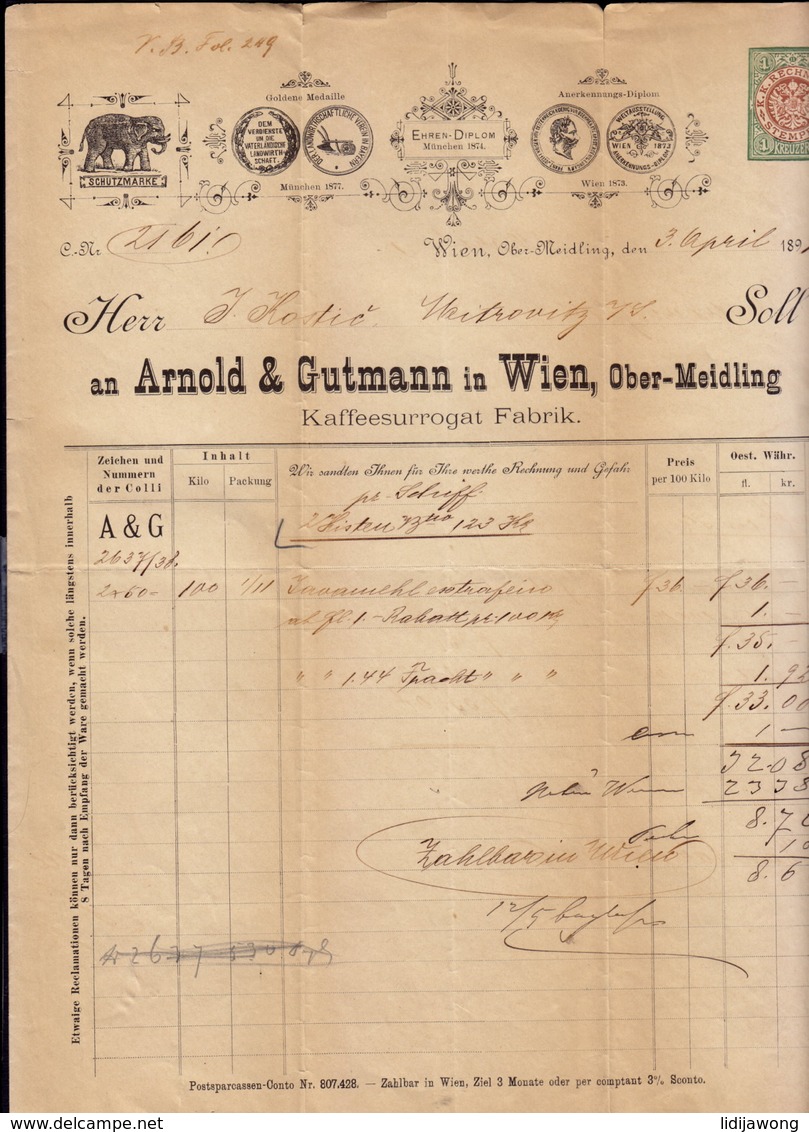 V. B. Fol. 249
1
K.K. RECH
STEMP
1 KREUZER
Goldene Medaille
Anerkennungs-Diplom
DEM VERDIENSTE UM DIE VATERLÄNDISCHE LANDWIRTHSCHAFT.
EHREN-DIPLOM
München 1874.
WELTAUSSTELLUNG WIEN 1873 ANERKENNUNGS-DIPLOM
SCHUTZMARKE
München 1877.
Wien 1873.
C.-Nr. 2161.
Wien, Ober-Meidling, den 3. April 189
Herr J. Kostić. Mitrovitz a/S. Soll
an Arnold & Gutmann in Wien, Ober-Meidling
Kaffeesurrogat Fabrik.
Zeichen und Nummern der Colli
Inhalt
Kilo Packung
Wir sandten Ihnen für Ihre werthe Rechnung und Gefahr
Preis per 100 Kilo
Oest. Währ.
fl. kr.
pr. Schiff
A & G 2 Kisten Btto 123 Ko
2637/38.
2x50- 100 1/11 Javamehl extrafein f 36 f. 36. –
ab fl. 1.- Rabatt pr. 100 Ko 1. –
f. 35. –
" " 1.44 Fracht " " " 1. 92
f. 33. 00
1 –
32.08
2338
8.7
Zahlbar in Wien
10
8.6
12/5
Etwaige Reclamationen können nur dann berücksichtigt werden, wenn solche längstens innerhalb
8 Tagen nach Empfang der Ware gemacht werden.
Postsparcassen-Conto Nr. 807.428. — Zahlbar in Wien, Ziel 3 Monate oder per comptant 3% Sconto.
lidijawong